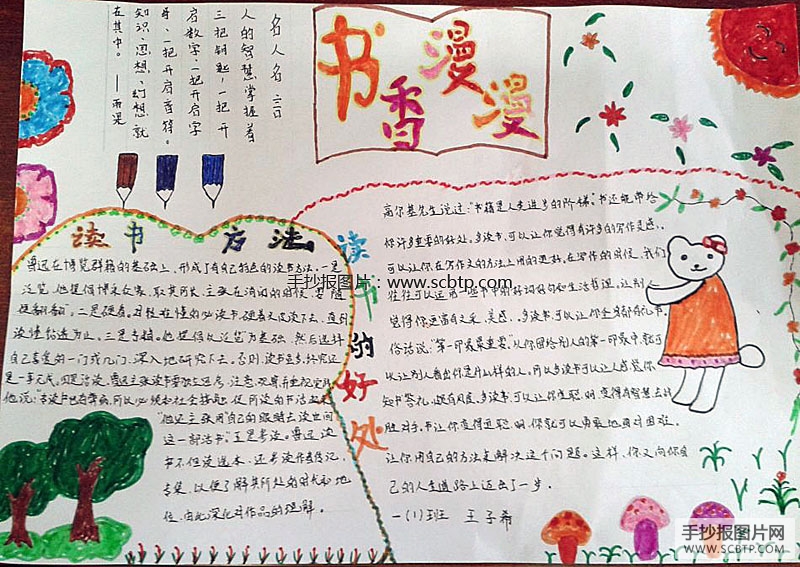 书香漫漫
名人名言
人的智慧掌握着
三把钥匙,一把开
启数字,一把开启字
母,一把开启音符。
知识、思想、幻想就
在其中。
——雨果
读书方法
鲁迅在博览群籍的基础上,形成了有自己特色的读书方法。一是
泛览。他提倡博采众家,取其所长,主张在消闲的时候,要“随
便翻翻”。二是硬看。对较难懂的必读书,硬着头皮读下去,直到
读懂钻透为止。三是专精。他提倡以“泛览”为基础,然后选择
自己喜爱的一门或几门,深入地研究下去。否则,读书虽多,终究还
是一事无成。四是活读。鲁迅主张读书要独立思考,注意观察并重视实践
他说:“专读书也有弊病,所以必须和社会接触,使所读的书活起来
“他还主张用“自己的眼睛去读世间
这一部活书”。五是参读。鲁迅读
书不但读选本,还参读作者传记、
专集,以便了解其所处的时代和地
位,由此深化对作品的理解。
读书的好处
高尔基先生说过:“书籍是人类进步的阶梯。”书还能带给
你许多重要的好处。多读书,可以让你觉得有许多的写作灵感。
可以让你在写作文的方法上用的更好。在写作的时候,我们
往往可以运用一些书中的好词好句和生活哲理。让别人
觉得你更富有文采,美感。多读书,可以让你全身都有礼节。
俗话说:“第一印象最重要。”从你留给别人的第一印象中,就可
以让别人看出你是什么样的人。所以多读书可以让人感觉你
知书答礼,颇有风度。多读书,可以让你变聪明,变得有智慧去战
胜对手。书让你变得更聪明,你就可以勇敢地面对困难。
让你用自己的方法来解决这个问题。这样,你又向你自
己的人生道路上迈出了一步。
一(1)班 王子希
手抄报图片:www.scbtp.com
手抄报图片网
WWW.SCBTP.COM